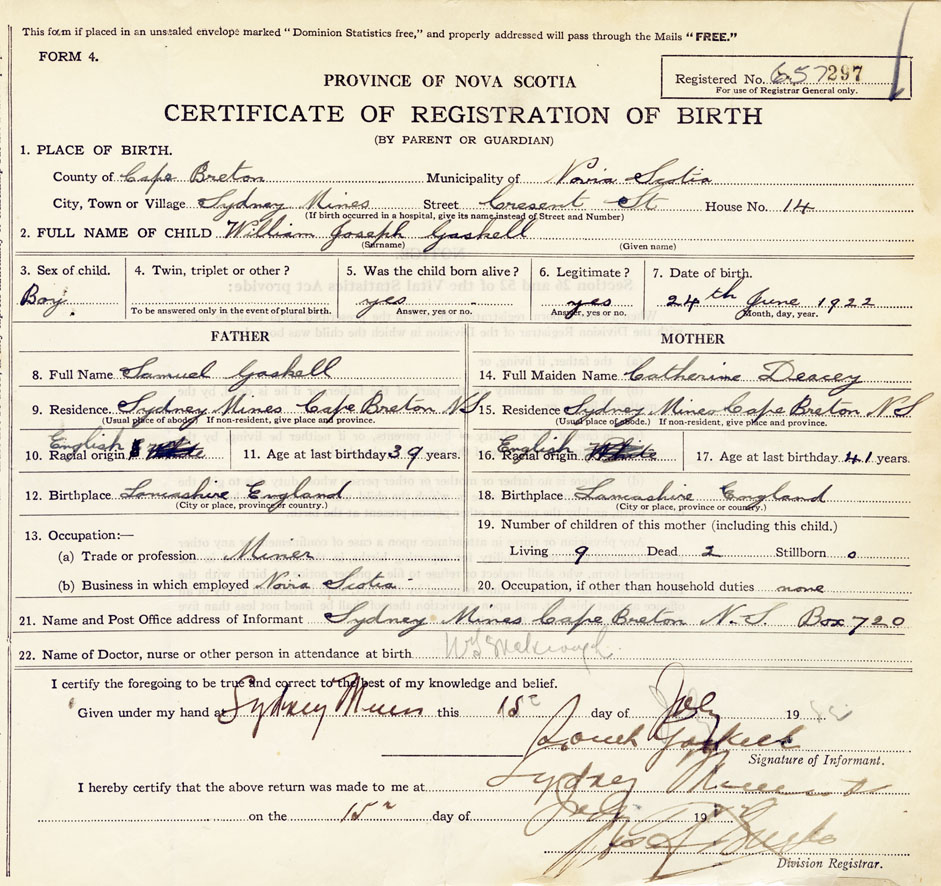 This form if placed in an unsealed envelope marked "Dominion Statistics free," and properly addressed will pass through the Mails "FREE."
FORM 4.
Registered No. 657297
For use of Registrar General only.
PROVINCE OF NOVA SCOTIA
CERTIFICATE OF REGISTRATION OF BIRTH
(BY PARENT OR GUARDIAN)
1. PLACE OF BIRTH.
County of Cape Breton Municipality of Novia Scotia
City, Town or Village Sydney Mines Street Cresent St. House No. 14
(If birth occurred in a hospital, give its name instead of Street and Number)
2. FULL NAME OF CHILD William Joseph Gaskell
(Surname) (Given name)
3. Sex of child. 4. Twin, triplet or other? 5. Was the child born alive? 6. Legitimate? 7. Date of birth.
Boy yes yes 24th June 1922
To be answered only in the event of plural birth. Answer, yes or no. Answer, yes or no. Month, day, year.
FATHER MOTHER
8. Full Name Samuel Gaskell 14. Full Maiden Name Catherine Deacey
9. Residence. Sydney Mines Cape Breton N S 15. Residence Sydney Mines Cape Breton N. S
(Usual place of abode.) If non-resident, give place and province. (Usual place of abode.) If non-resident, give place and province.
English English
10. Racial origin White 11. Age at last birthday 39 years. 16. Racial origin White 17. Age at last birthday 41 years.
12. Birthplace Lancashire England 18. Birthplace Lancashire England
(City or place, province or country.) (City or place, province or country.)
13. Occupation:— 19. Number of children of this mother (including this child.)
(a) Trade or profession Miner Living 9 Dead 2 Stillborn 0
(b) Business in which employed Novia Scotia 20. Occupation, if other than household duties none
21. Name and Post Office address of Informant Sydney Mines Cape Breton N. S. Box 720
22. Name of Doctor, nurse or other person in attendance at birth
I certify the foregoing to be true and correct to the best of my knowledge and belief.
Given under my hand at Sydney Mines this 15 day of July 19
Signature of Informant.
I hereby certify that the above return was made to me at Sydney Mines
on the 15 day of July 19
Division Registrar.